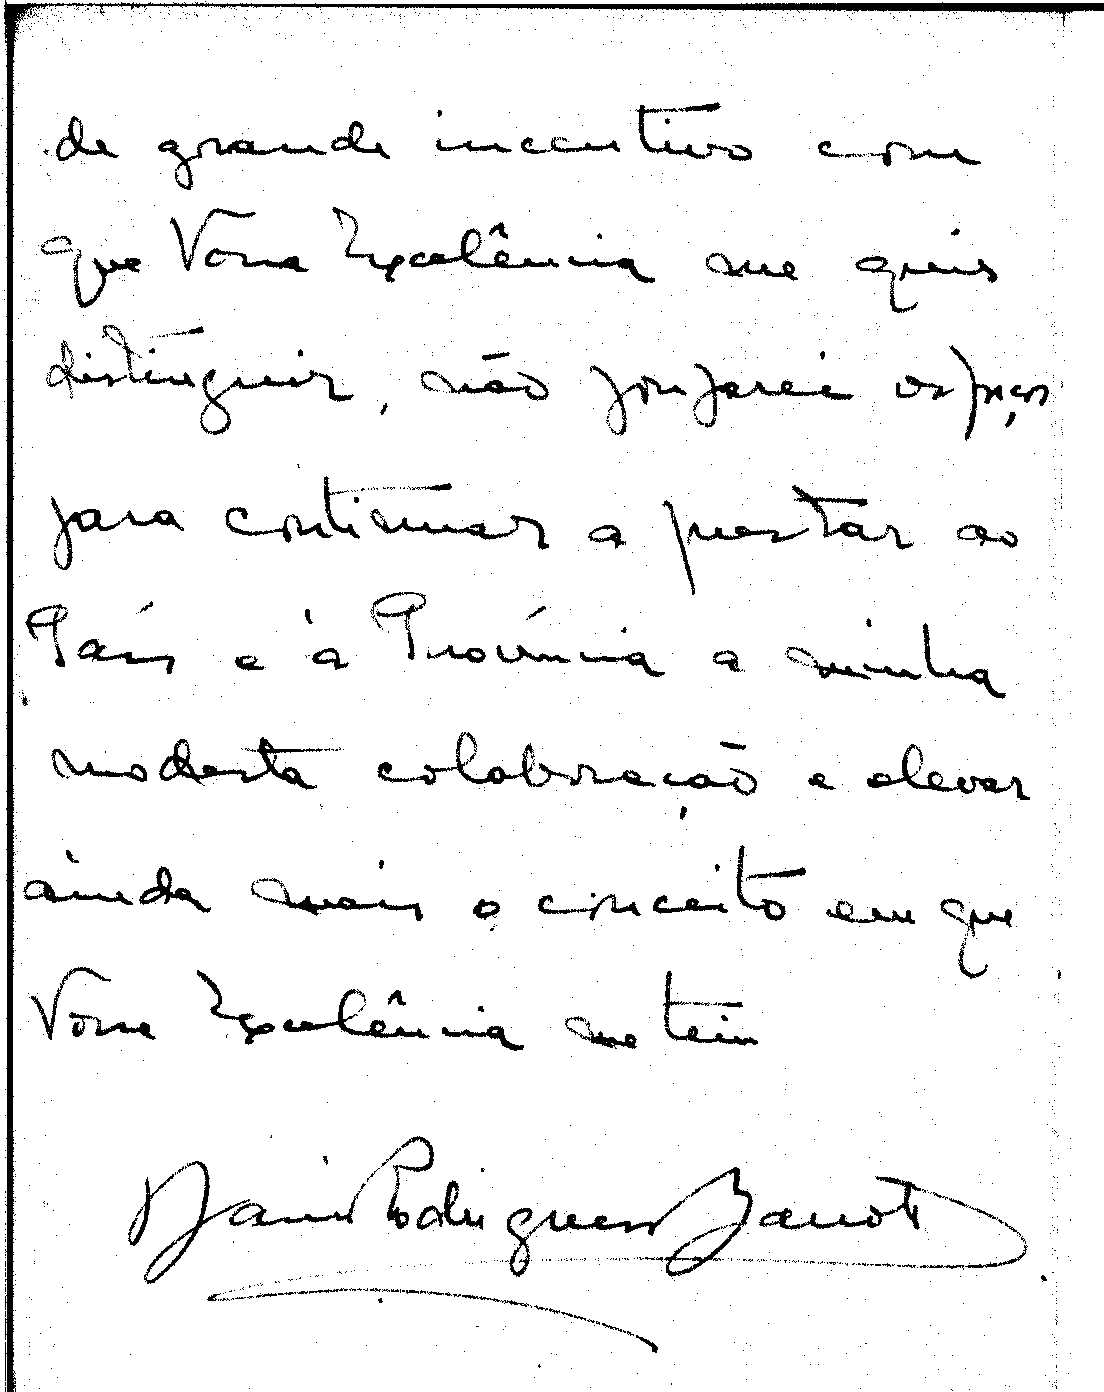 de grande incentivo com
que Vossa Excelência me quis
distinguir, não pouparei esforços
para continuar a prestar ao
País e à Província a minha
modesta colaboração e elevar
ainda mais o conceito em que
Vossa Excelência me tem
Rodrigues